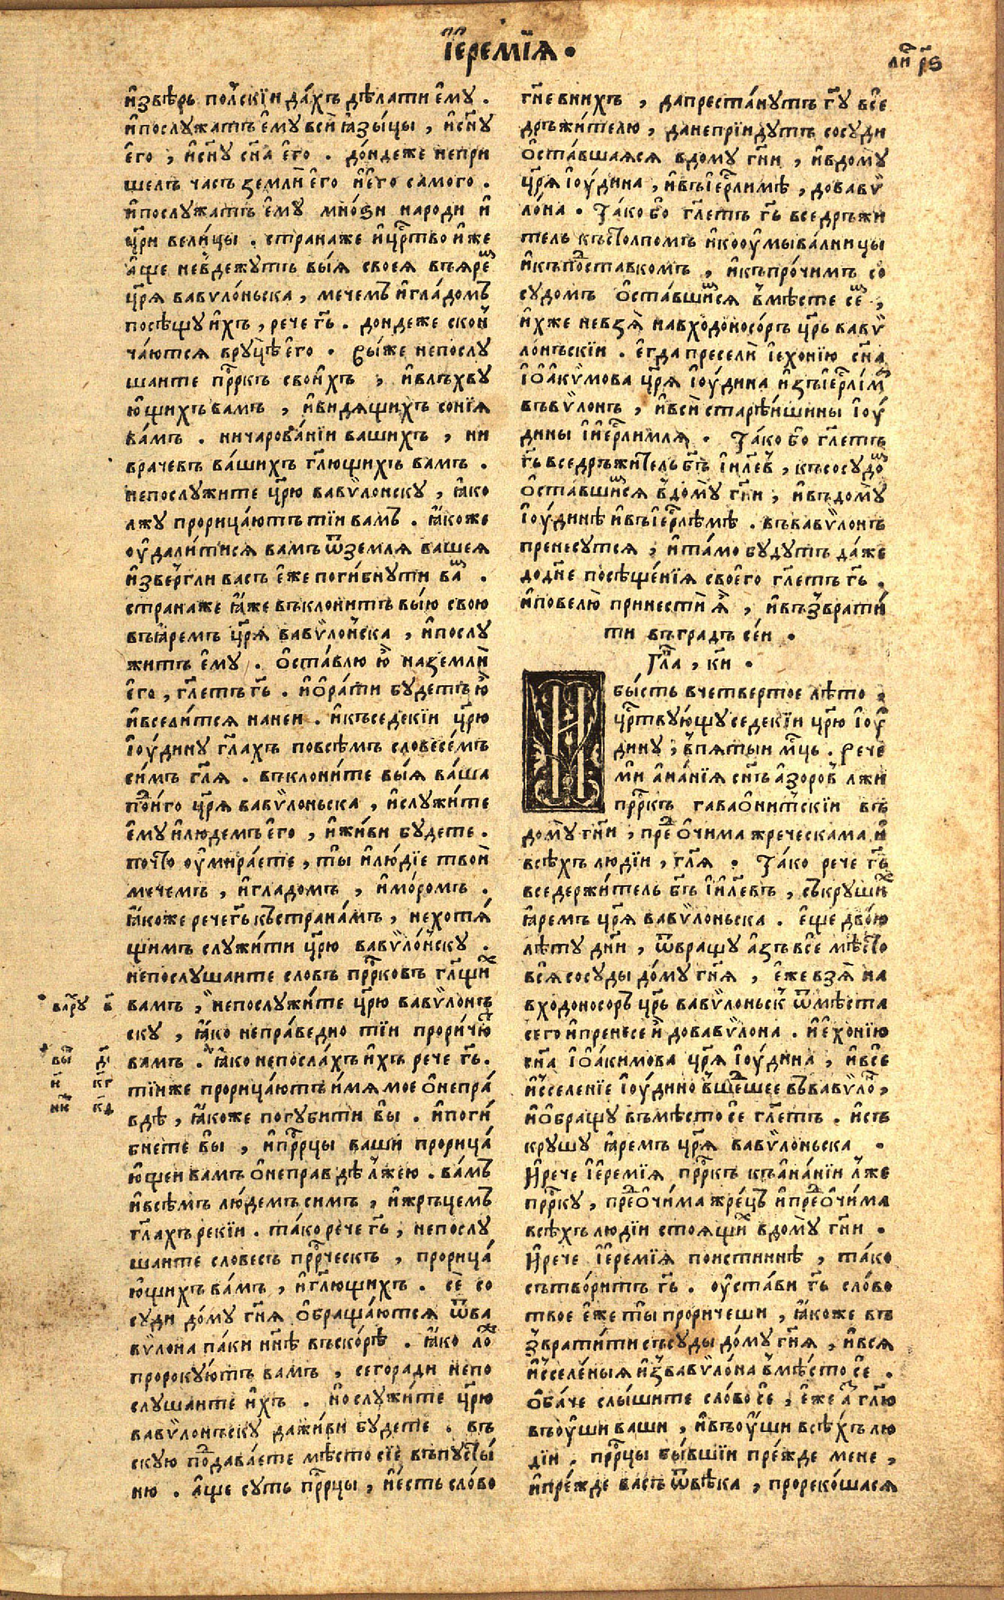 І҆еремі́ѧ .
ли́ рѕ
и҆звѣрь по́лскїи да́хъ дѣлати є҆му .
и҆послужатъ є҆му вси ꙗ҆зы́цы , и҆сн҃у
є҆го , и҆сн҃у сн҃а є҆го . до́ндеже непри
шелъ часъ земли є҆го и҆є҆го самого .
и҆послужатъ є҆му мно́ѕи народи и҆
цр҃и вели́цы . странаже и҆цр҃тво и҆же
а҆ще невдежутъ вы́ѧ своеѧ въꙗ҆ре
цр҃ѧ вавѷло́ньска , мечемъ и҆гла́домъ
посѣщу и҆хъ , рече гь҃ . дондеже скон
ча́ютсѧ вруцѣ є҆го . вы́же непослу
шаите прр҃къ свои́хъ , и҆влъхву
ю҆щихъ вамъ , и҆видѧщихъ сонїѧ
ва́мъ . ничарова́нїи вашихъ , ни
врачевъ ва́шихъ гл҃ющихъ вамъ .
непослужите цр҃ю вавѷлонску , ꙗ҆ко
лжу прорица́ютъ тїи вамъ . ꙗ҆коже
оу҆дали́тисѧ вамъ ѿземлѧ вашеѧ
и҆зве́ргли васъ є҆же поги́бнути ва .
странаже ꙗ҆же въклонитъ вы́ю свою
въꙗ҆ремъ цр҃ѧ вавѷло́нска , и҆послу
житъ є҆му . ѡ҆ста́влю ю҆ наземли
є҆го , гл҃етъ гь҃ . и҆ѡ҆ра́ти будетъ ю҆
и҆всели́тсѧ нанеи . и҆къседекїи цр҃ю
і҆оу́дину гл҃ахъ повсѣмъ словесе́мъ
си́мъ гл҃ѧ . въклони́те вы́ѧ ва́ша
цр҃ѧ вавѷло́ньска , и҆служи́те
є҆му и҆людемъ є҆го , и҆жи́ви будете .
почто оу҆мира́ете , ты и҆лю́дїе твои
мечемъ , и҆гладомъ , и҆мо́ромъ .
ꙗ҆коже рече гь҃ къстрана́мъ , нехотѧ́
щимъ служи́ти цр҃ю вавѷло́нску .
непослушаите словъ прр҃ковъ гл҃щи
вамъ , непослужи́те цр҃ю вавѷлонъ
ску , ꙗ҆ко непра́ведно тїи проричю
вамъ . ꙗ҆ко непосла́хъ и҆хъ рече гь҃ .
тїиже прорица́ютъ и҆мѧ мое ѡ҆непра́
вдѣ , ꙗ҆коже погубити вы . и҆поги́
бнете вы , и҆прр҃цы ваши прорица́
ю҆щеи вамъ ѡ҆неправдѣ лжею . ва́мъ
и҆всѣмъ лю́демъ симъ , и҆жръцемъ
гл҃ахъ рекїи . та́ко рече гь҃ , непослу
шаите словесъ прр҃ческъ , прорица́
ю҆щихъ ва́мъ , и҆гл҃ющихъ . се со
суди до́му гн҃ѧ ѡ҆браща́ютсѧ ѿва
вѷлона па́ки нн҃ѣ въско́рѣ . ꙗ҆ко лож
пророку́ютъ вамъ , сегоради непо
слушаите и҆хъ . послужи́те цр҃ю
вавѷлонъску даживи будете . въ
скую подаваете мѣсто сїе въпусты́
ню . а҆ще суть прр҃цы , и҆е́сть сло́во
вару в
вы ді
и кг
ни кд
гн҃е внихъ , дапреста́нутъ гу҃ все
дръжи́телю , данепрїидутъ сосуди
ѡ҆ста́вшаѧсѧ вдому гн҃и , и҆вдому
цр҃ѧ і҆оу́дина , и҆въі҆ер҃лимѣ , довавѷ
ло́на . Та́ко бо гл҃етъ гь҃ вседръжи
тель къстолпомъ и҆коѹ҆мыва́лницы
и҆къпоставкомъ , и҆къпро́чимъ со
судомъ ѡ҆ста́вшисѧ вмѣсте се ,
и҆хже невзѧ навходоносо́ръ цр҃ь вавѷ
лонъскїи . є҆гда́ пресели і҆ехонїю сн҃а
і҆ѡ҆акѷмова цр҃ѧ і҆оу́дина и҆зъі҆ер҃ли́м
въвѷлонъ , и҆вси старѣ́ишины і҆оу́
дины и҆і҆ер҃лимлѧ . Та́ко бо гл҃етъ
гь҃ вседръжи́тель бг҃ъ і҆и҃левъ , къ сосудо
ѡ҆ста́вшисѧ вдо́му гн҃и , и҆въдо́му
і҆оу́динѣ и҆въі҆ер҃ли́мѣ . въвавѷлонъ
пренесутсѧ , и҆та́мо бу́дутъ да́же
додн҃е посѣще́нїѧ своего гл҃етъ гь҃ .
и҆повелю принести ѧ , и҆възврати́
ти въградъ сеи .
Гла , ки .
И
бы́сть вчетвертое лѣто ,
цр҃тву́ющу седекїи цр҃ю і҆оу́
дину , впѧтыи мц҃ь . рече
ми а҆на́нїѧ сн҃ъ а҆зоро́в лжи
прр҃къ гаваѡни́тскїи въ
дому гн҃и , пре ѡ҆чима жреческама и҆
всѣхъ людїи , гл҃ѧ . Та́ко рече гь҃
вседержи́тель бг҃ъ і҆и҃левъ , съкруши́х
ꙗ҆ремъ цр҃ѧ вавѷлоньска . є҆ще дво́ю
лѣту дн҃и , ѿвращу а҆зъ все мѣсто
всѧ сосуды до́му гн҃ѧ , є҆же взѧ на
входоносоръ цр҃ь вавѷлоньск ѿмѣста
сего и҆пренесе и҆ довавѷлона . и҆е҆хонїю
сн҃а і҆ѡ҆акимова цр҃ѧ і҆оу́дина , и҆все
и҆сселенїе і҆оу́дино въвавѷло ,
и҆ѡ҆бращу въмѣсто се гл҃етъ . и҆съ
крушу ꙗ҆ремъ цр҃ѧ вавѷлоньска .
И҆рече і҆еремі́ѧ прр҃къ къа҆на́нїи лже
прр҃ку , преѡ҆чима жре́цъ и҆преѡ҆чима
всѣхъ людїи стоѧщи вдому гн҃и .
И҆рече і҆еремі́ѧ поистиннѣ , та́ко
сътво́ритъ гь҃ . оу҆ста́ви гь҃ сло́во
твое є҆же ты проричеши , ꙗ҆коже въ
зврати́ти съсуды до́му гн҃ѧ , и҆всѧ
и҆сселе́ныѧ и҆звавѷло́на вмѣсто се .
ѡ҆ба́че слы́шите сло́во се , є҆же а гл҃ю
въоу́ши ваши , и҆въоу́ши всѣхъ лю
дїи . прр҃цы бы́вшїи пре́жде мене ,
и҆пре́жде васъ ѿвѣка , пророко́шасѧ